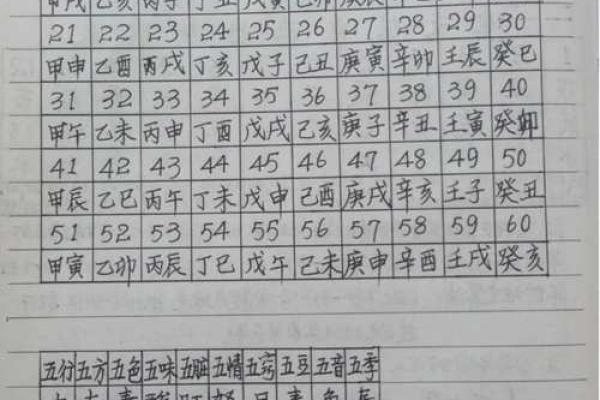 甲戌 乙亥 丙子 丁丑 戊寅 己卯 庚辰
21 22 23 24 25 26 27 28 29 30
甲申 乙酉 丙戌 丁亥 戊子 己丑 庚寅 辛卯 壬辰 癸巳
31 32 33 34 35 36 37 38 39 40
甲午 乙未 丙申 丁酉 戊戌 己亥 庚子 辛丑 壬寅 癸卯
41 42 43 44 45 46 47 48 49 50
甲辰 乙巳 丙午 丁未 戊申 己酉 庚戌 辛亥 壬子 癸丑
51 52 53 54 55 56 57 58 59 60
甲寅 乙卯 丙辰 丁巳 戊午 己未 庚申 辛酉 壬戌 癸亥
五行 五方 五色 五味 五脏 五情 五窍 五豆 五音 五季